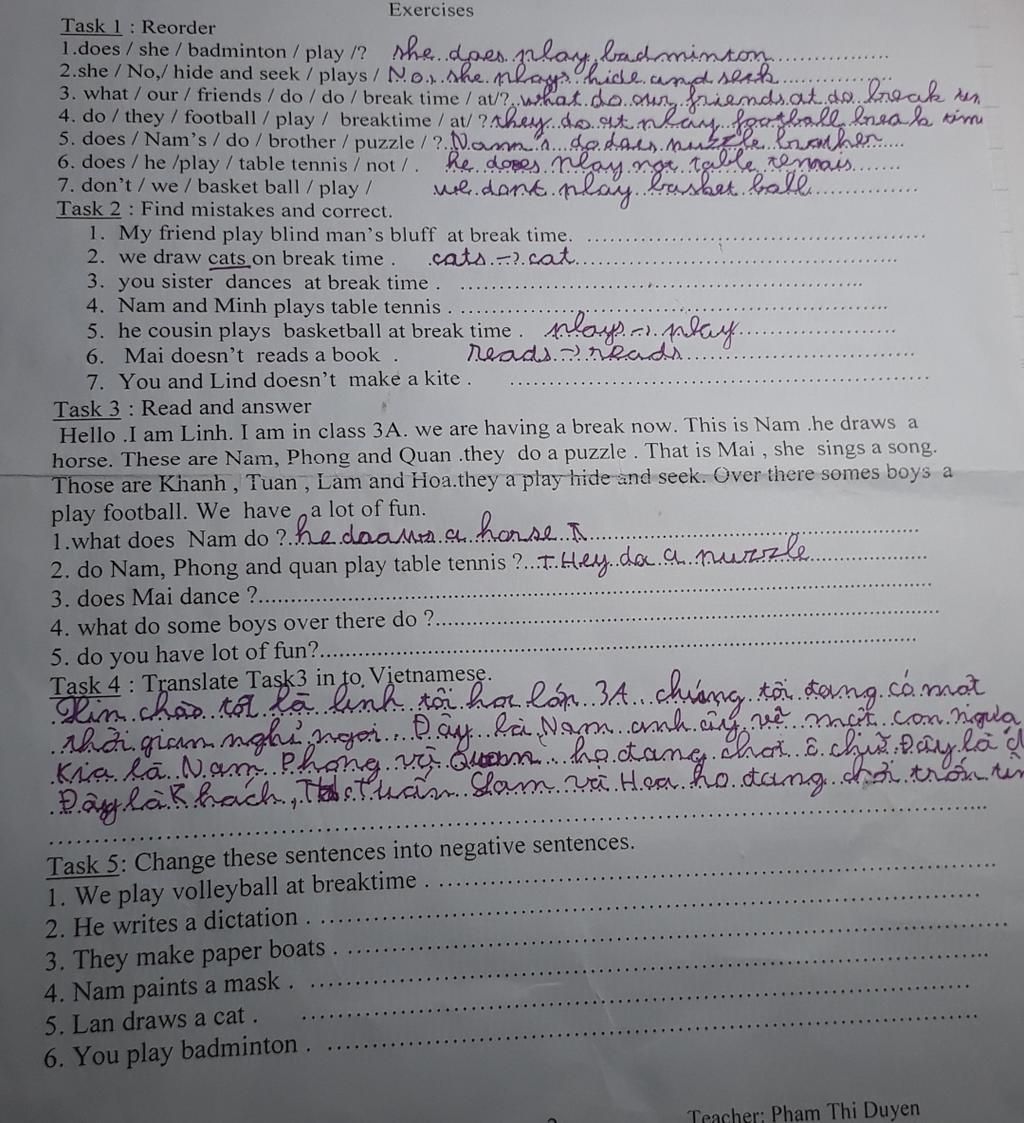 Exercises
Task 1 : Reorder
1.does / she / badminton / play /? she does play badminton
2.she / No,/ hide and seek / plays / No, she plays hide and seek
3. what / our / friends / do / do / break time / at/? what do our friends at do break
4. do / they / football / play / breaktime / at/ ? they do at play football break tim
5. does / Nam's / do / brother / puzzle / ? Nam's do does puzzle brother
6. does / he /play / table tennis / not / . he does play not table
7. don't / we / basket ball / play / we dont play basket ball
Task 2 : Find mistakes and correct.
1. My friend play blind man's bluff at break time.
2. we draw cats on break time . cats -> cat
3. you sister dances at break time .
4. Nam and Minh plays table tennis .
5. he cousin plays basketball at break time . plays -> play
6. Mai doesn't reads a book . reads -> reads
7. You and Lind doesn't make a kite .
Task 3 : Read and answer
Hello .I am Linh. I am in class 3A. we are having a break now. This is Nam .he draws a
horse. These are Nam, Phong and Quan .they do a puzzle . That is Mai , she sings a song.
Those are Khanh , Tuan , Lam and Hoa.they a play hide and seek. Over there somes boys a
play football. We have a lot of fun.
1.what does Nam do ? he a horse
2. do Nam, Phong and quan play table tennis ? THey do a puzzle
3. does Mai dance ?
4. what do some boys over there do ?
5. do you have lot of fun?
Task 4 : Translate Task3 in to Vietnamese.
Xin chào tôi là linh tôi học lớp 3A chúng tôi đang có một
thời gian nghỉ ngơi. Đây là Nam anh ấy vẽ một con ngựa
Kia là Nam Phong và Quan họ đang chơi ô chữ. Đây là
Đây là Khách, Tuấn Lam và Hoa họ đang chơi trốn
Task 5: Change these sentences into negative sentences.
1. We play volleyball at breaktime .
2. He writes a dictation .
3. They make paper boats .
4. Nam paints a mask .
5. Lan draws a cat .
6. You play badminton .
Teacher: Pham Thi Duyen